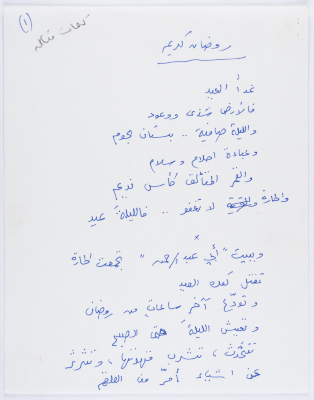 (١)
رمضان كريم
غداً العيد
فالأرض شذى ووعود
والليلة صافية .. بستان نجوم
وعباءة احلام وسلام
والقمر المتألق كأس نديم
والحارة لا تغفو .. فالليلة عيد
×
وببيت "أبي عبد الرحمن" تجمعت الحارة
تفتل كعك العيد
وتودّع آخر ساعات من رمضان
وتعيش الليلة حتى الصبح
تتحدّث ، تشرب قهوتها ، وتثرثر
عن اشياء أمرّ من العلقم